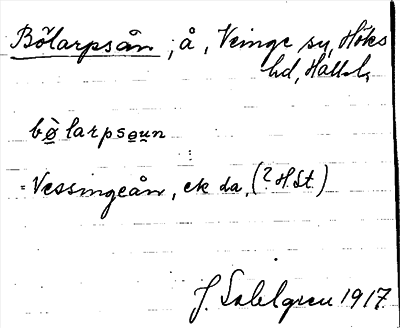 Bölarpsån, å, Veinge sn, Höks
hd, Hall. l.
bø̀larpsøun
= Vessingeån, ek da, (? H.St.)
J. Sahlgren 1917